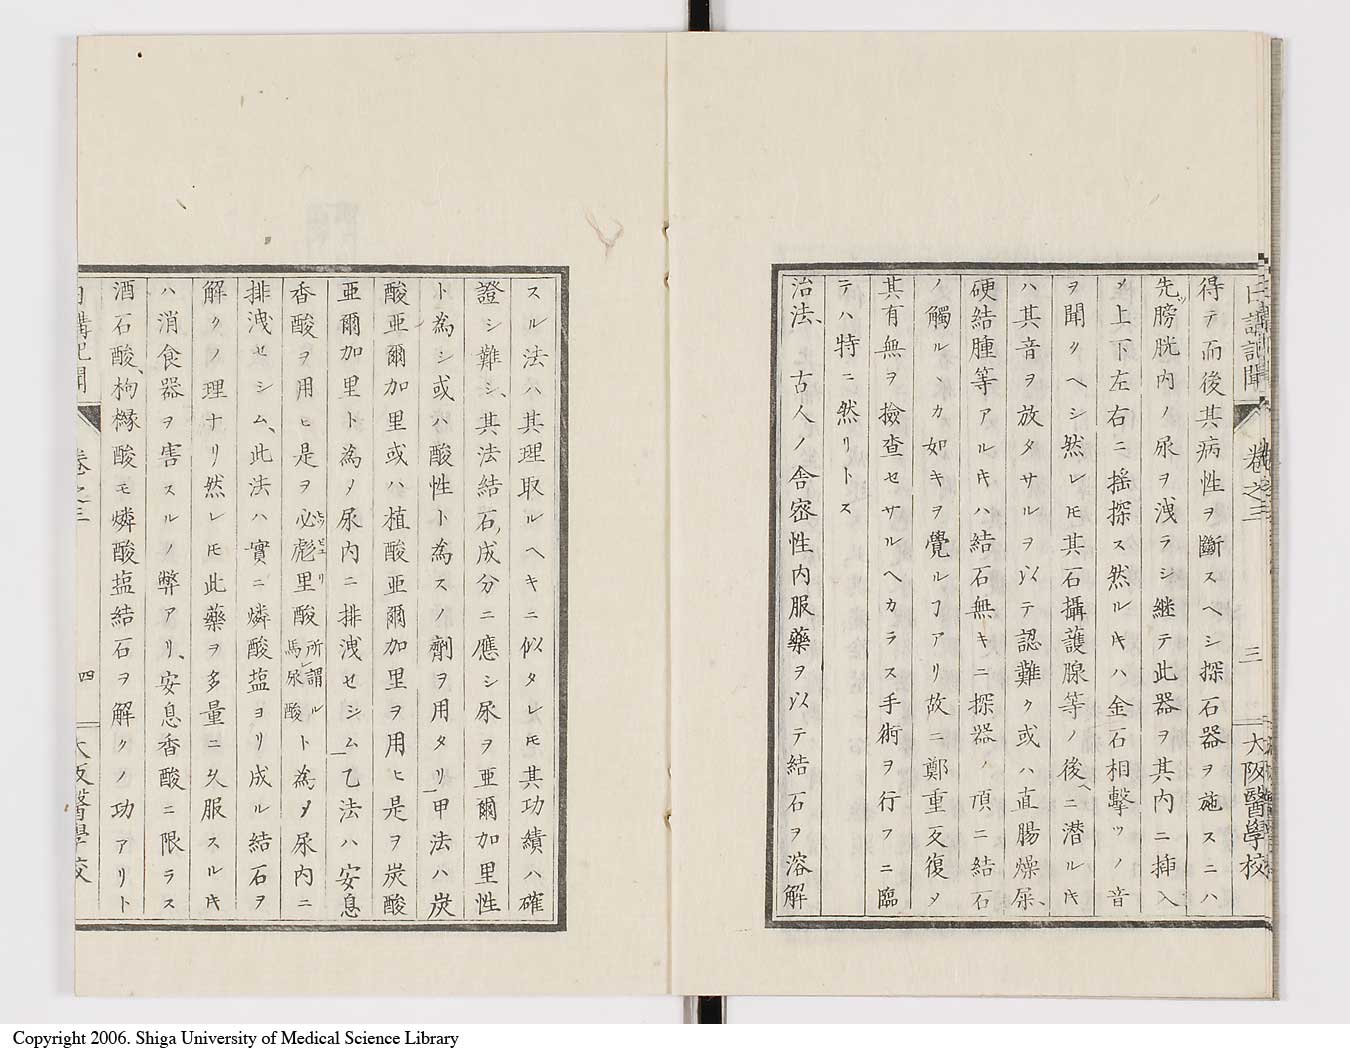 日講記聞 卷之三 三 大阪醫學校
得テ而後其病性ヲ斷スヘシ探石器ヲ施スニハ
先ツ膀胱内ノ尿ヲ洩ラシ継テ此器ヲ其内ニ挿入
メ上下左右ニ揺探ス然ルキハ金石相擊ツノ音
ヲ聞クヘシ然レモ其石攝護腺等ノ後ヘニ潜ルキ
ハ其音ヲ放タサルヲ以テ認難ク或ハ直腸燥屎、
硬結腫等アルキハ結石無キニ探器ノ頂ニ結石
ノ觸ルヽカ如キヲ覺ルヿアリ故ニ鄭重反復メ
其有無ヲ撿査セサルヘカラス手術ヲ行フニ臨
テハ特ニ然リトス
治法、古人ノ舎密性内服藥ヲ以テ結石ヲ溶解
スル法ハ其理取ルヘキニ似タレモ其功績ハ確
證シ難シ、其法結石ノ成分ニ應シ尿ヲ亜爾加里性
ト為シ或ハ酸性ト為スノ劑ヲ用タリ甲法ハ炭
酸亜爾加里或ハ植酸亜爾加里ヲ用ヒ是ヲ炭酸
亜爾加里ト為メ尿内ニ排洩セシム乙法ハ安息
香酸ヲ用ヒ是ヲ必彪里酸所謂ル馬尿酸ト為メ尿内ニ
排洩セシム、此法ハ實ニ燐酸塩ヨリ成ル結石ヲ
解クノ理ナリ然レモ此藥ヲ多量ニ久服スルキ
ハ消食器ヲ害スルノ弊アリ、安息香酸ニ限ラス
酒石酸、枸櫞酸モ燐酸塩結石ヲ解クノ功アリト
日講記聞 卷之三 四 大阪醫學校
Copyright 2006. Shiga University of Medical Science Library